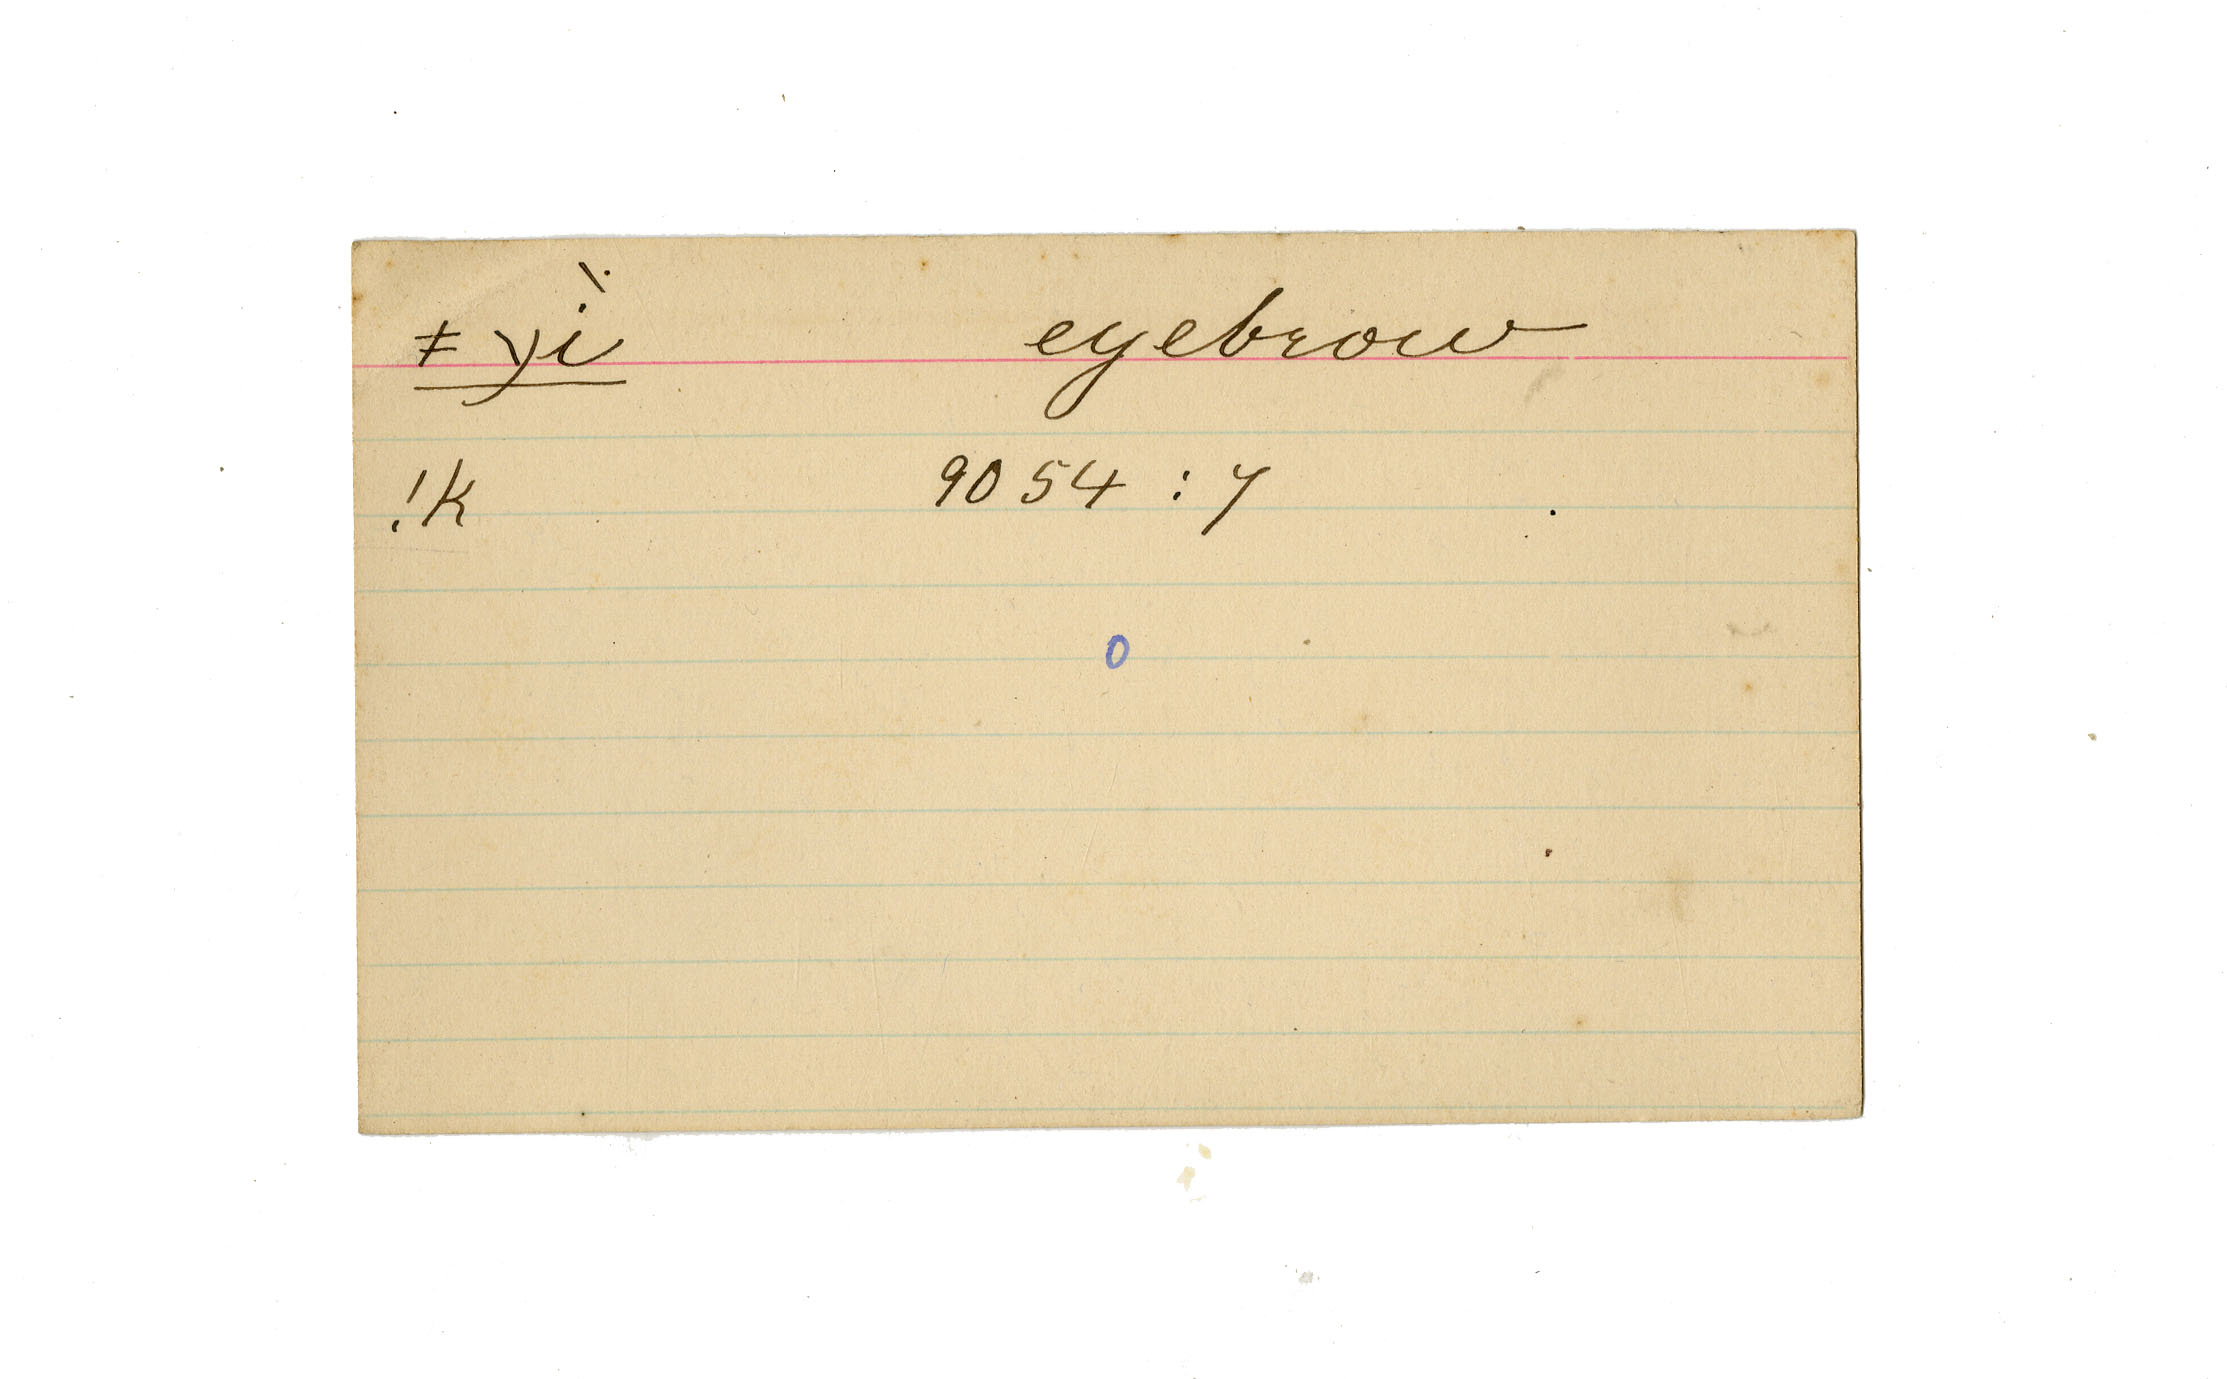 ǂ yì eyebrow
!k 9054 : 7
0